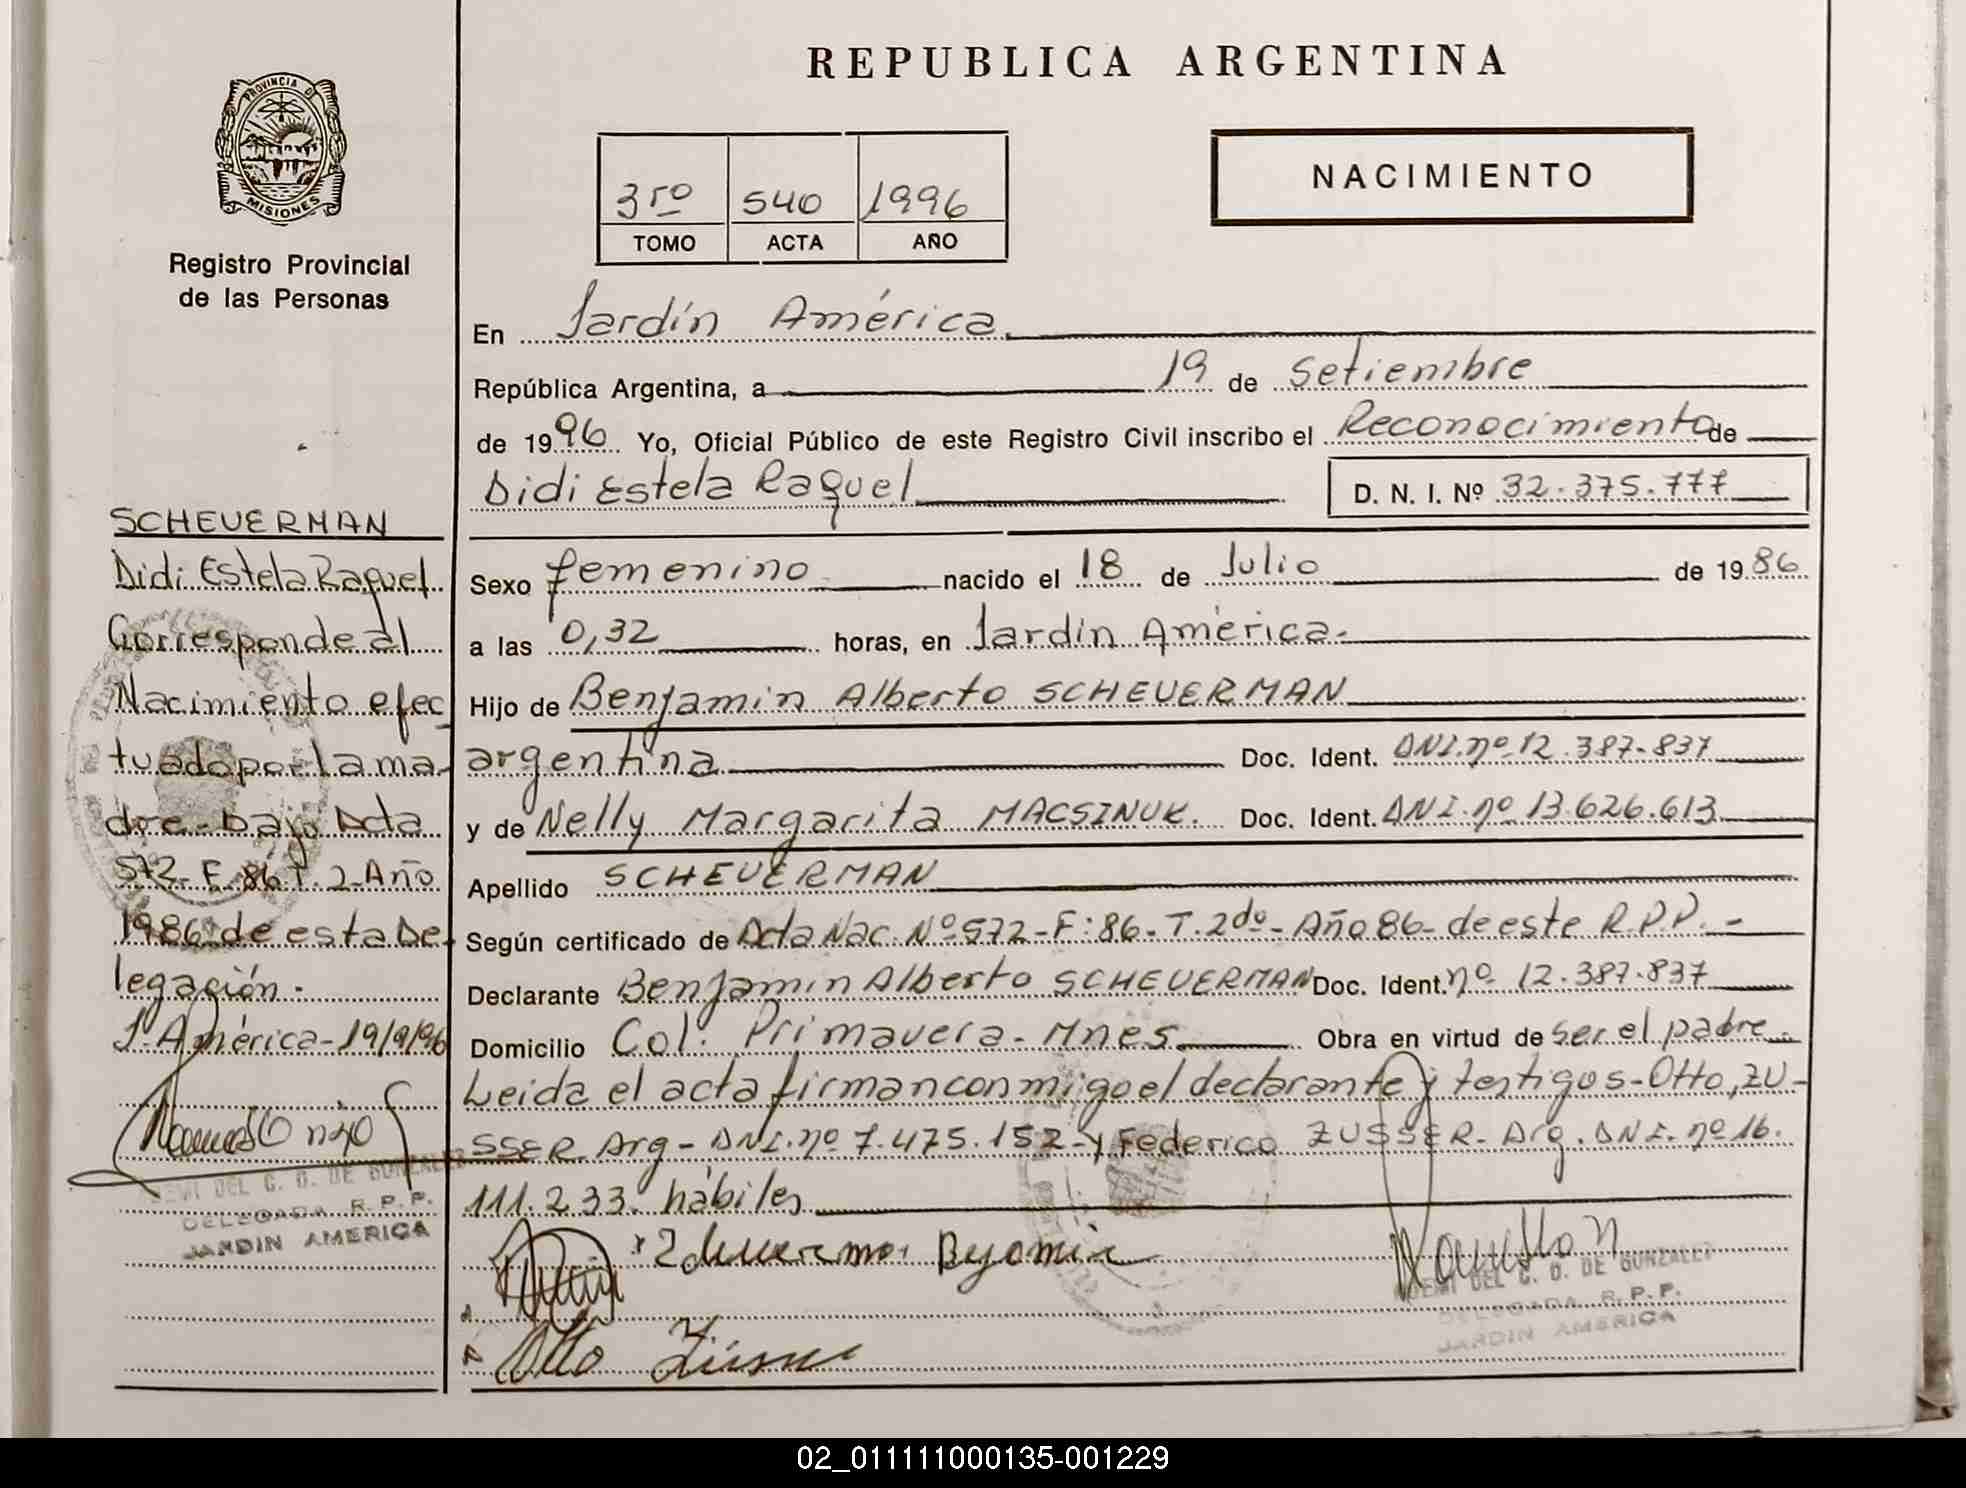 PROVINCIA DE
MISIONES
Registro Provincial
de las Personas
SCHEUERMAN
Didi Estela Raquel
Corresponde al
Nacimiento efec
tuado por la ma-
dre - bajo Acta
572 - F. 86 T. 2 - Año
1986 de esta De-
legación.
J. América - 19/9/96
DEL C. D. DE GONZALEZ
DELEGADA R. P. P.
JARDIN AMERICA
REPUBLICA ARGENTINA
NACIMIENTO
3ro 540 1996
TOMO ACTA AÑO
En Jardín América.
República Argentina, a 19 de Setiembre
de 1996 Yo, Oficial Público de este Registro Civil inscribo el Reconocimiento de
Didi Estela Raquel D. N. I. Nº 32.375.777
Sexo femenino nacido el 18 de Julio de 1986
a las 0,32 horas, en Jardín América.
Hijo de Benjamin Alberto SCHEUERMAN
argentina Doc. Ident. DNI. nº 12.387.837
y de Nelly Margarita MACSINUK. Doc. Ident. DNI. nº 13.626.613
Apellido SCHEUERMAN
Según certificado de Acta Nac. Nº 572 - F: 86 - T. 2do - Año 86 - de este R.P.P. -
Declarante Benjamin Alberto SCHEUERMAN Doc. Ident. nº 12.387.837
Domicilio Col. Primavera - Mnes Obra en virtud de ser el padre.
Leida el acta firman conmigo el declarante y testigos - Otto, ZU-
SSER Arg - DNI. nº 7.475.152 - y Federico ZUSSER - Arg. DNI. nº 16.
111.233. hábiles
Otto
DEL C. D. DE GONZALEZ
DELEGADA R. P. P.
JARDIN AMERICA
02_011111000135-001229